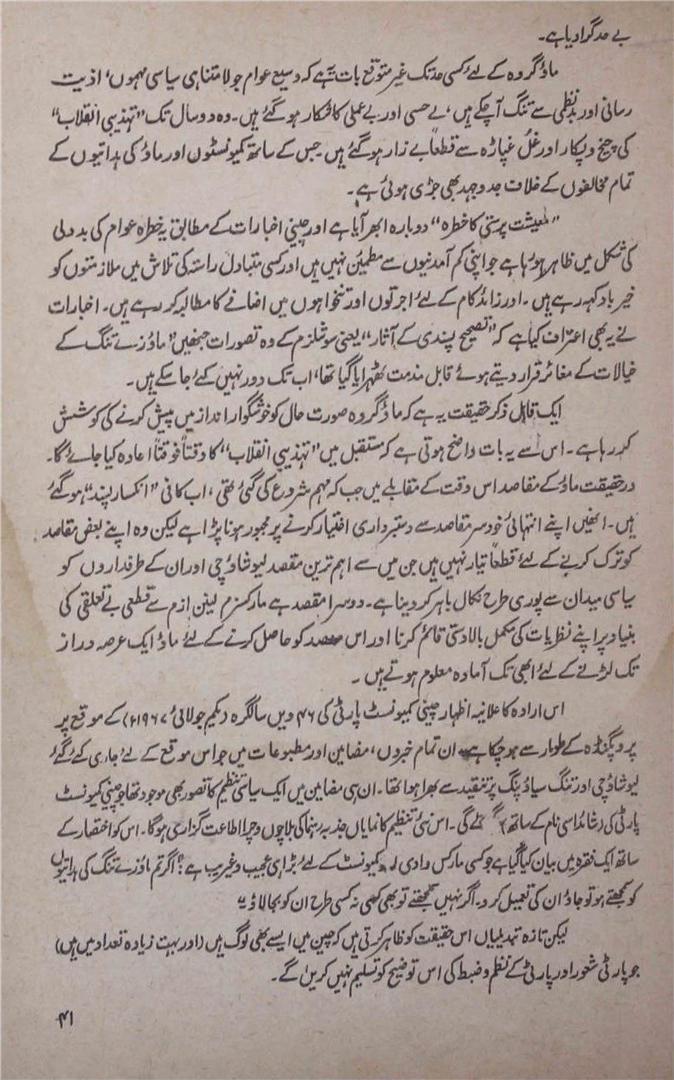 بے حد گرا دیا ہے۔
ماؤ گروہ کے لئے کسی حد تک غیر متوقع بات یہ ہے کہ وسیع عوام جو لامتناہی سیاسی مہموں، اذیت
رسانی اور بدنظمی سے تنگ آ چکے ہیں، بے حسی اور بے عملی کا شکار ہو گئے ہیں۔ وہ دو سال تک ”تہذیبی انقلاب“
کی چیخ و پکار اور غل غپاڑہ سے قطعاً بے زار ہو گئے ہیں۔ جس کے ساتھ کمیونسٹوں اور ماؤ کی ہدایتوں کے
تمام مخالفوں کے خلاف جدوجہد بھی جڑی ہوئی ہے۔
”معیشت پرستی کا خطرہ“ دوبارہ ابھر آیا ہے اور چینی اخبارات کے مطابق یہ خطرہ عوام کی بد دلی
کی شکل میں ظاہر ہو رہا ہے جو اپنی کم آمدنیوں سے مطمئن نہیں ہیں اور کسی متبادل راستہ کی تلاش میں ملازمتوں کو
خیر باد کہہ رہے ہیں۔ اور زائد کام کے لئے اجرتوں اور تنخواہوں میں اضافے کا مطالبہ کر رہے ہیں۔ اخبارات
نے یہ بھی اعتراف کیا ہے کہ ”تصحیح پسندی کے آثار“ یعنی سوشلزم کے وہ تصورات جنھیں ”ماؤزے تنگ کے
خیالات کے مغائر قرار دیتے ہوئے قابل مذمت ٹھہرایا گیا تھا، اب تک دور نہیں کئے جا سکے ہیں۔
ایک قابل ذکر حقیقت یہ ہے کہ ماؤ گروہ صورت حال کو خوشگوار انداز میں پیش کرنے کی کوشش
کر رہا ہے۔ اس سے یہ بات واضح ہوتی ہے کہ مستقبل میں ”تہذیبی انقلاب“ کا وقتاً فوقتاً اعادہ کیا جائے گا۔
درحقیقت ماؤ کے مقاصد اس وقت کے مقابلے میں جب کہ مہم شروع کی گئی تھی، اب کافی ”انکسار پسند“ ہو گئے
ہیں۔ انھیں اپنے انتہائی خودسر مقاصد سے دستبرداری اختیار کرنے پر مجبور ہونا پڑا ہے لیکن وہ اپنے بعض مقاصد
کو ترک کرنے کے لئے قطعاً تیار نہیں ہیں جن میں سے اہم ترین مقصد لیوشاؤچی اور ان کے طرفداروں کو
سیاسی میدان سے پوری طرح نکال باہر کر دینا ہے۔ دوسرا مقصد ہے مارکسزم لینن ازم سے قطعی بے تعلقی کی
بنیاد پر اپنے نظریات کی مکمل بالادستی قائم کرنا اور اس مقصد کو حاصل کرنے کے لئے ماؤ ایک عرصہ دراز
تک لڑنے کے لئے ابھی تک آمادہ معلوم ہوتے ہیں۔
اس ارادہ کا علانیہ اظہار چینی کمیونسٹ پارٹی کی ۴۶ ویں سالگرہ (یکم جولائی ۱۹۶۷ء) کے موقع پر
پروپگنڈہ کے طومار سے ہو چکا ہے۔ ان تمام خبروں، مضامین اور مطبوعات میں جو اس موقع کے لئے جاری کئے گئے
لیوشاؤچی اور تنگ سیاؤ پنگ پر تنقید سے بھرا ہوا تھا۔ ان ہی مضامین میں ایک سیاسی تنظیم کا تصور بھی موجود تھا جو چینی کمیونسٹ
پارٹی کی (شائد اسی نام کے ساتھ) لے گی۔ اس نئی تنظیم کا نمایاں جذبہ رہنما کی بلا چوں و چرا اطاعت گزاری ہوگا۔ اس کو اختصار کے
ساتھ ایک فقرہ میں بیان کیا گیا ہے جو کسی مارکس وادی کمیونسٹ کے لئے بڑا ہی عجیب و غریب ہے ”اگر تم ماؤزے تنگ کی ہدایتوں
کو سمجھتے ہو تو جاؤ ان کی تعمیل کرو۔ اگر نہیں سمجھتے تو بھی کسی نہ کسی طرح ان کو بجا لاؤ۔“
لیکن تازہ تبدیلیاں اس حقیقت کو ظاہر کرتی ہیں کہ چین میں ایسے بھی لوگ ہیں (اور بہت زیادہ تعداد میں ہیں)
جو پارٹی شعور اور پارٹی کے نظم و ضبط کی اس توضیح کو تسلیم نہیں کریں گے۔
۴۱